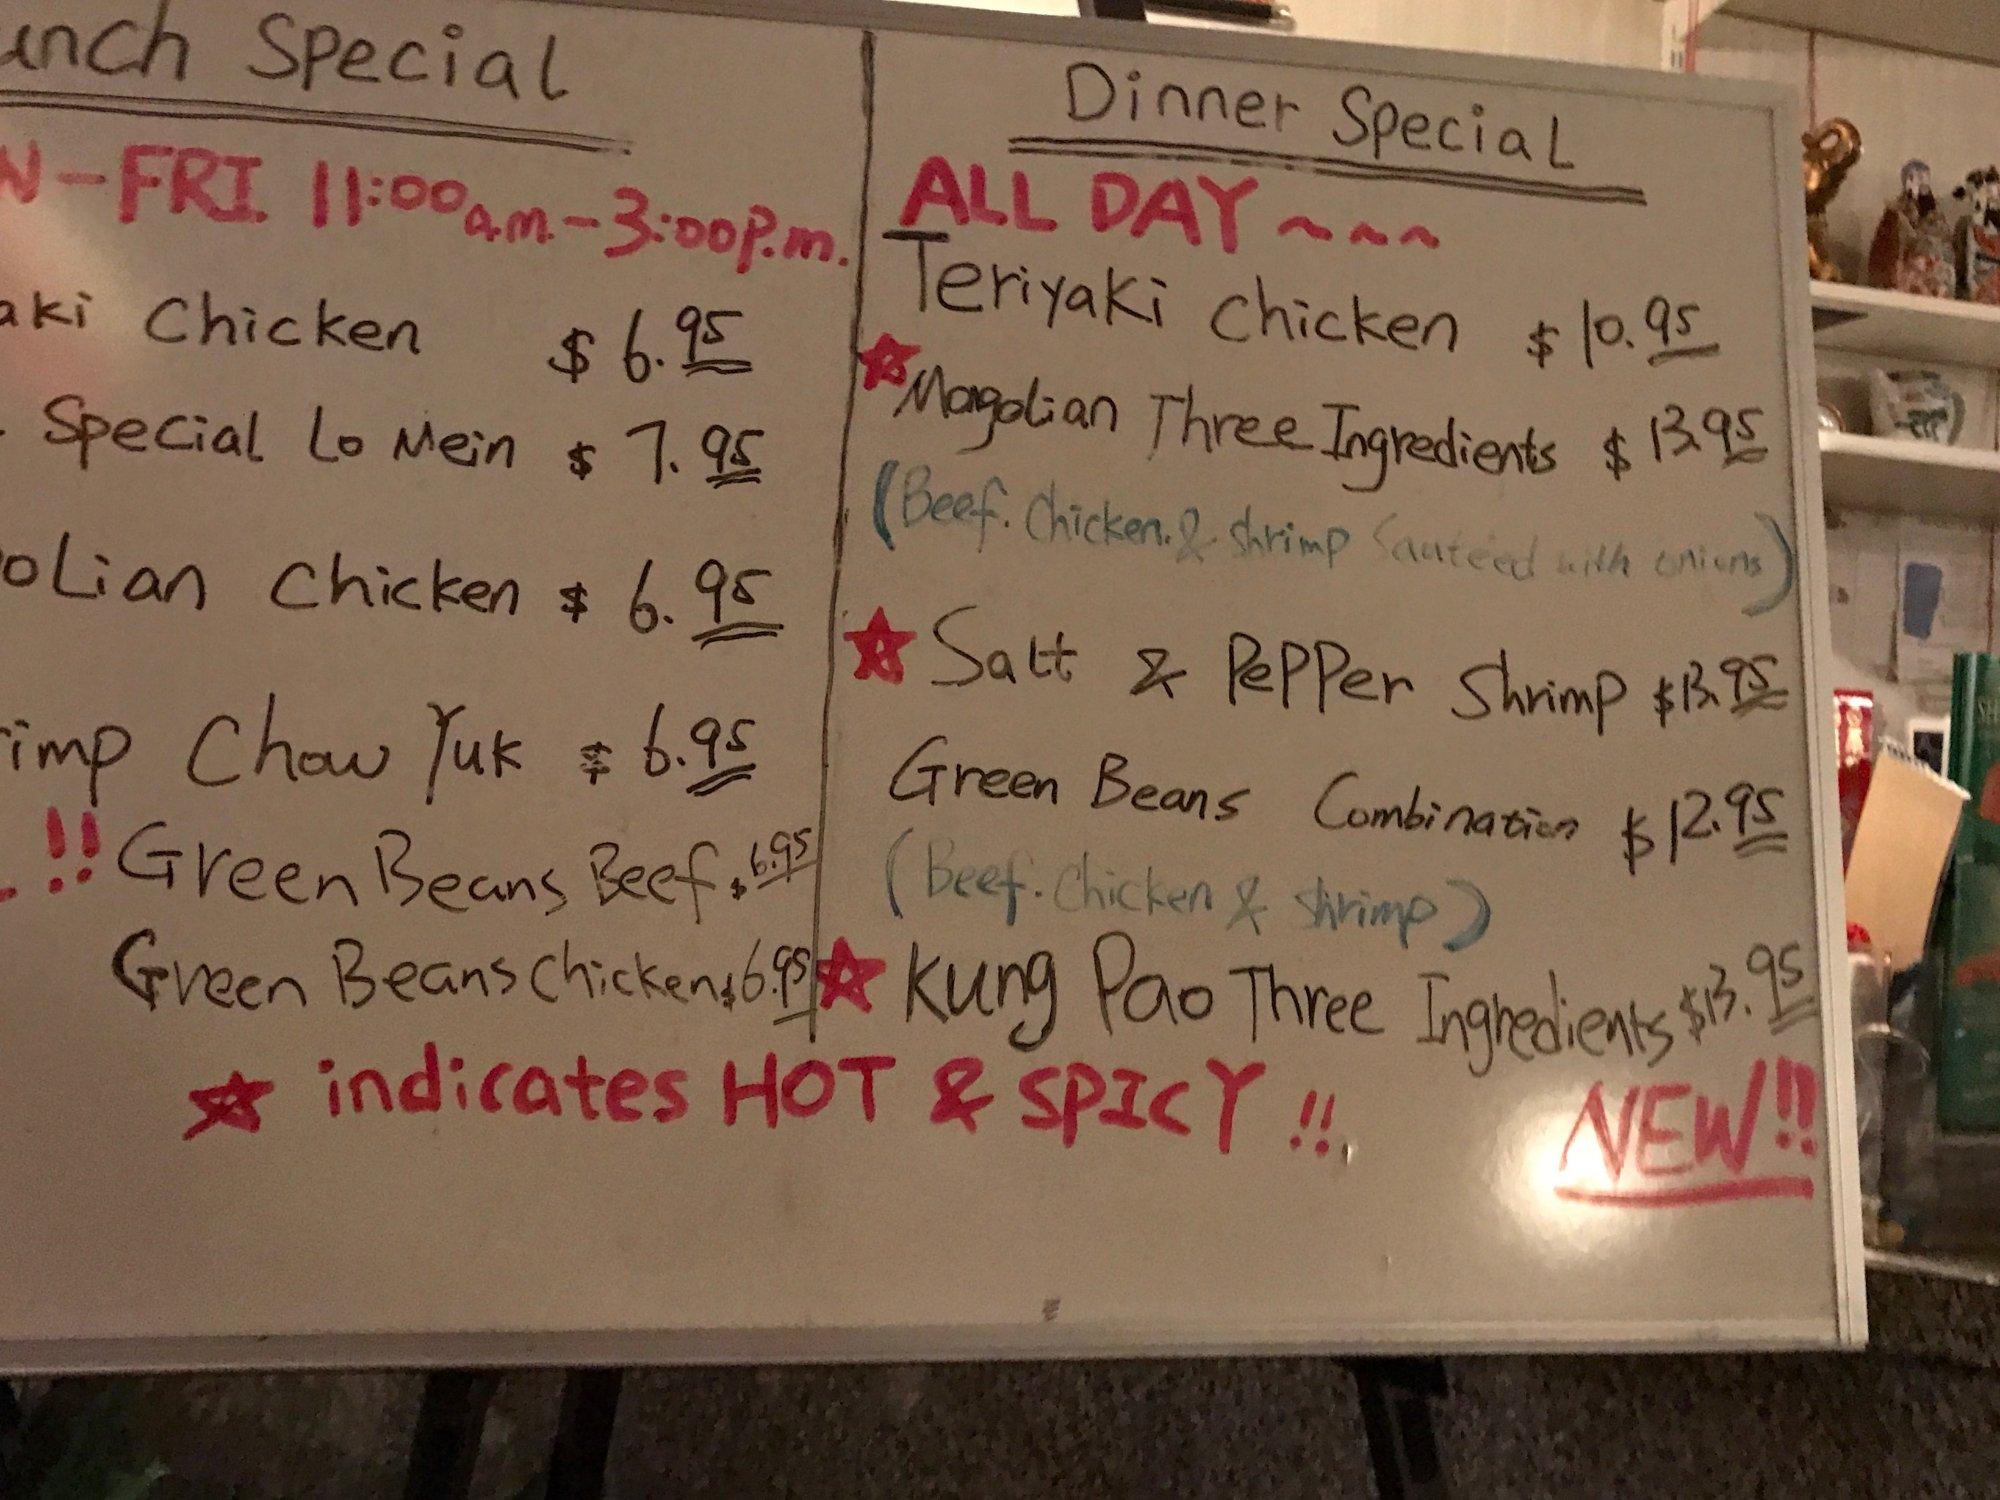 Special
FRI. 11:00 a.m. - 3:00 P.m.
Chicken $6.95
Special Lo Mein $7.95
Chicken $6.95
Chow Yuk $6.95
!! Green Beans Beef. $6.95
Green Beans Chicken $6.95
Dinner Special
ALL DAY ~~~
Teriyaki Chicken $10.95
☆ Mogolian Three Ingredients $13.95
(Beef. Chicken. & Shrimp Sauteed with onions)
☆ Salt & Pepper Shrimp $13.95
Green Beans Combination $12.95
(Beef. Chicken & Shrimp)
☆ Kung Pao Three Ingredients $13.95
NEW!!
☆ indicates HOT & SPICY !!